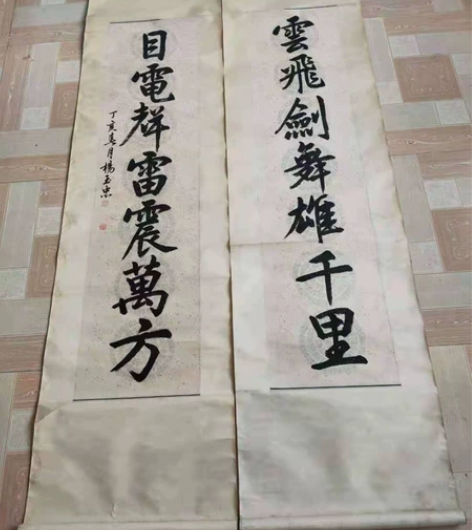 雲飛劍舞雄千里
目電聲雷震萬方
丁亥春月楊玉忠